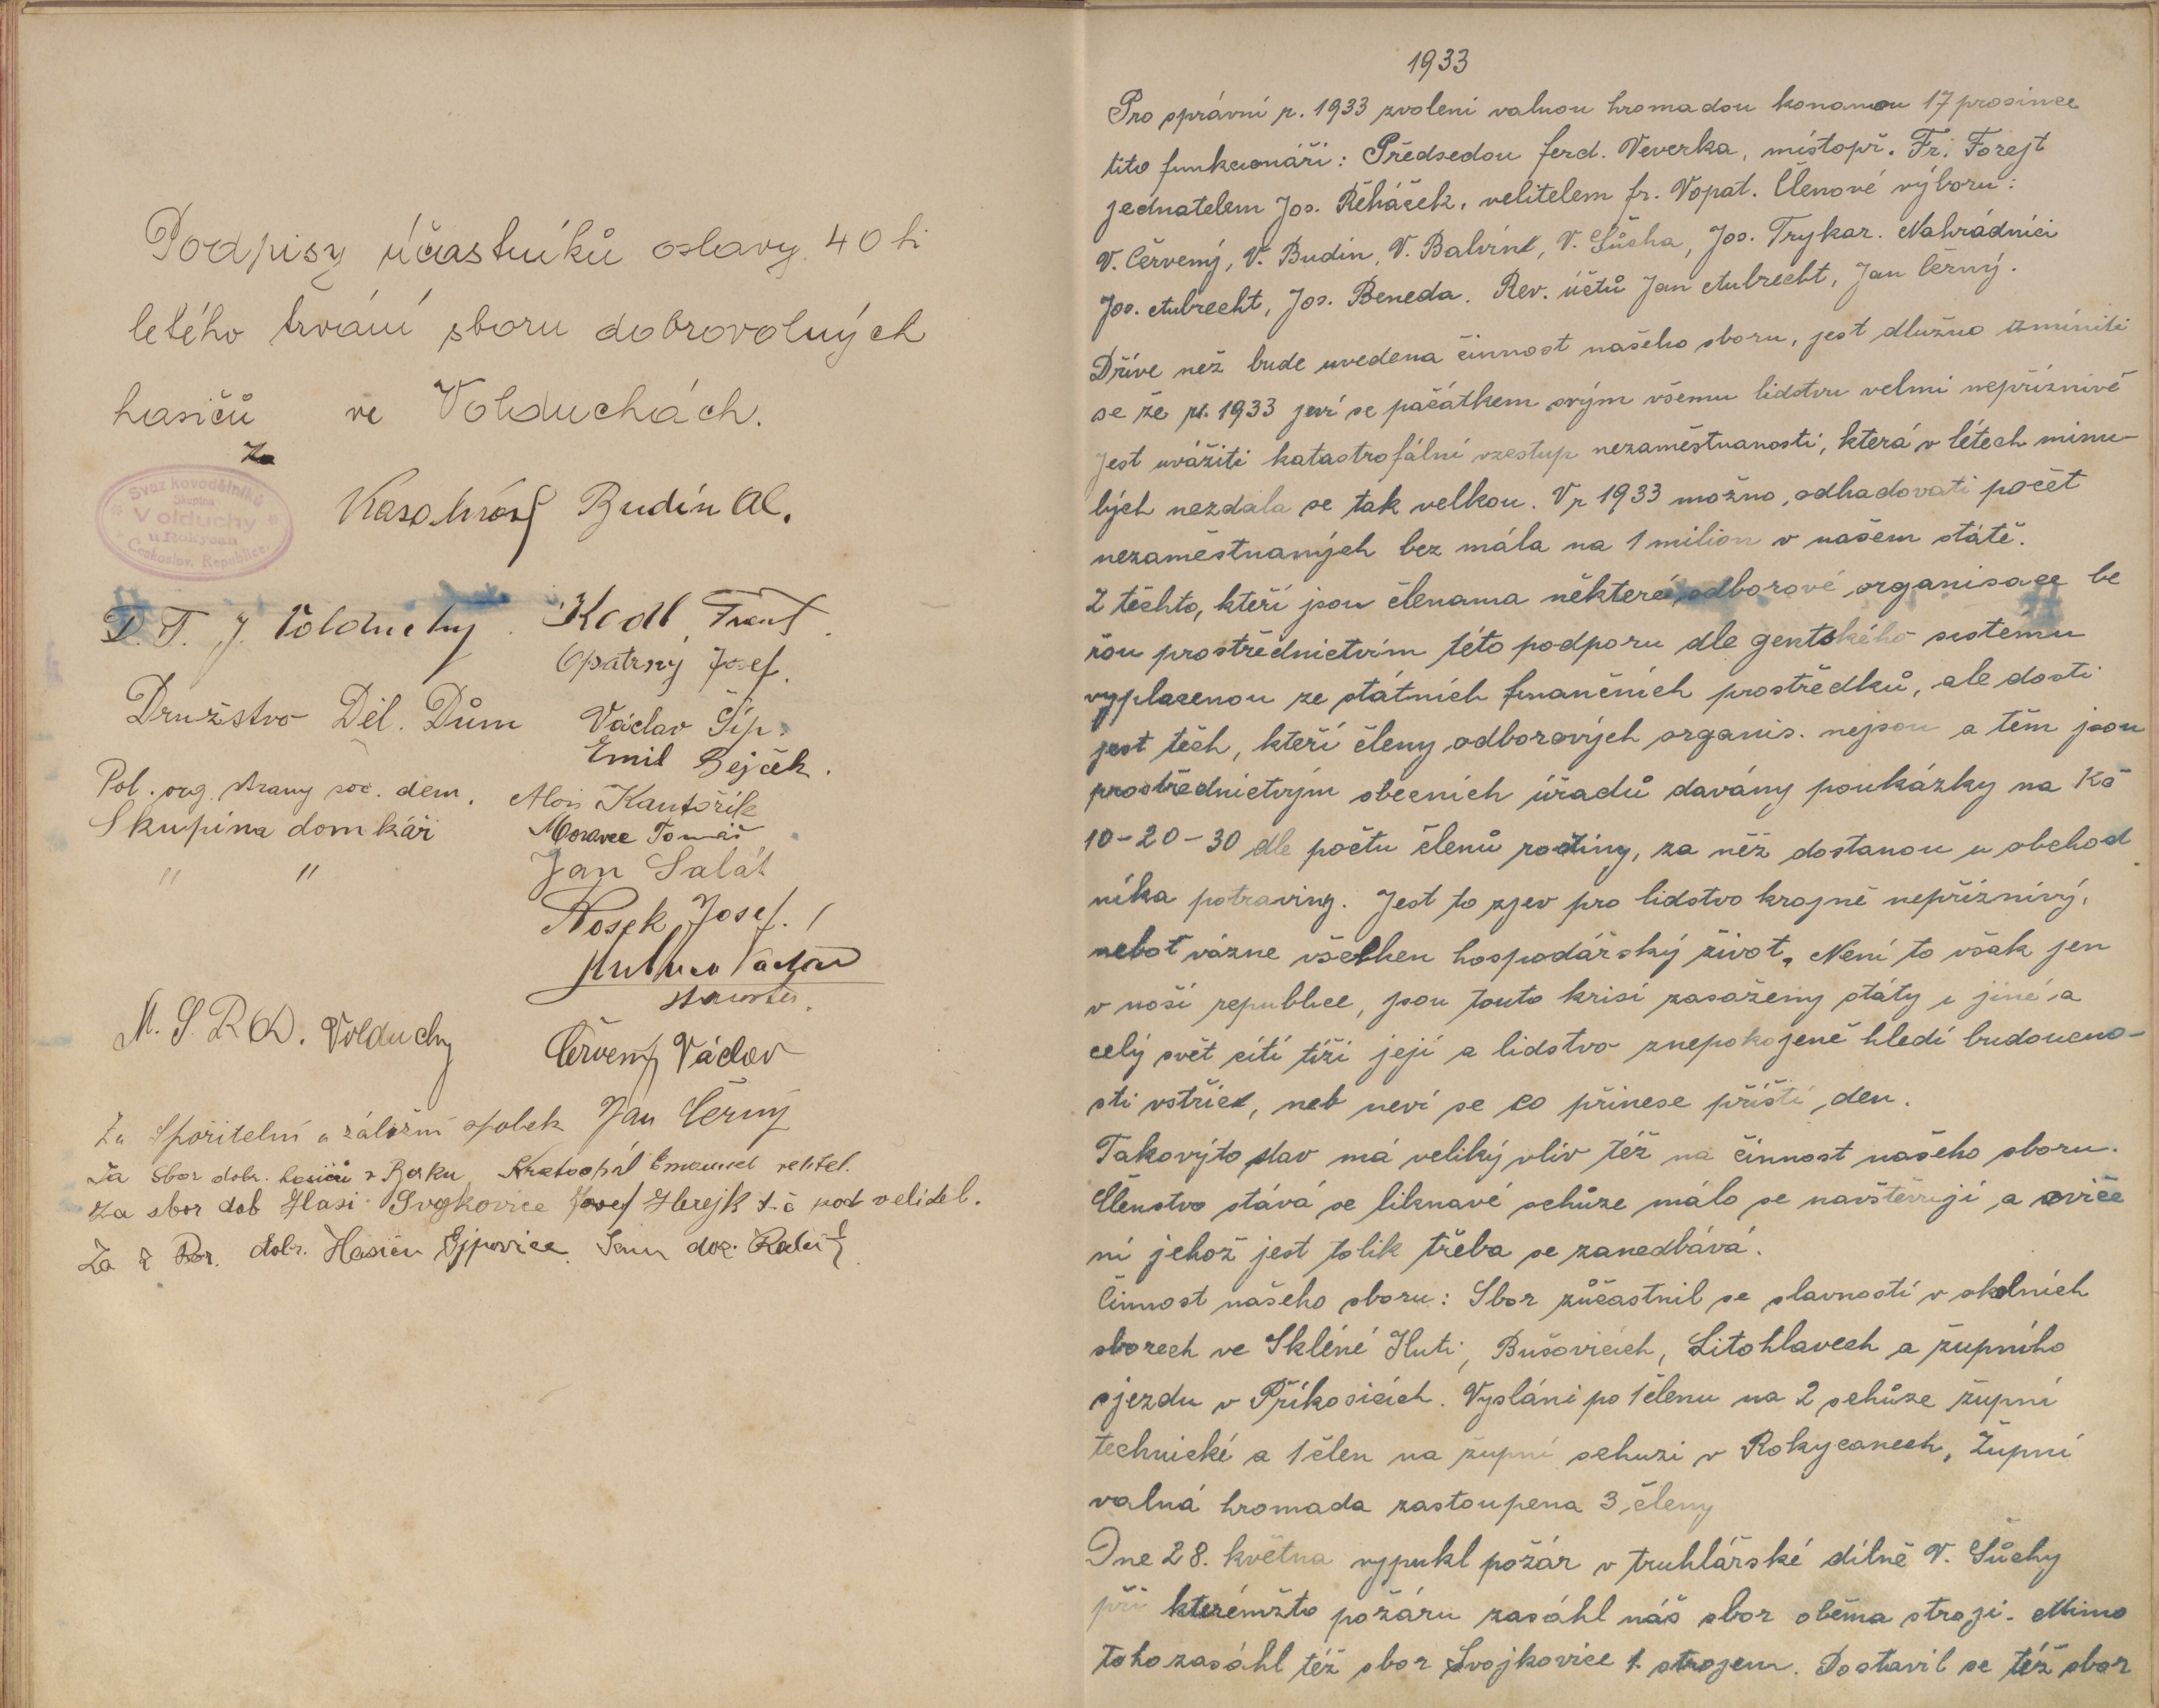 Podpisy účastníků oslavy 40 ti
letého trvání sboru dobrovolných
hasičů ve Volduchách.
Za
Svaz kovodělníků
Skupina
Volduchy
u Rokycan
Českoslov. Republice.
Budín Al.
D. T. J. Volduchy. Kodl Frant.
Opatrný Josef.
Družstvo Děl. Dům Václav Šíp.
Emil Bejček.
Pol. org. strany soc. dem. Alois Kantořík
Skupina domkáři Moravec Tomáš
" " Jan Salát
Nosek Josef.
starosta.
M. S. R. D. Volduchy Červený Václav
Za Spořitelní a záložní spolek Jan Černý
Za sbor dobr. hasičů z Borku Kratochvíl Emanuel velitel.
Za sbor dob Hasi Svojkovice Josef Herejk pod velidel.
Za Dobr. Hasičů Ejpovice
1933
Pro správní r. 1933 zvoleni valnou hromadou konanou 17 prosince
tito funkcionáři: Předsedou ferd. Veverka, místopř. Fr. Forejt
jednatelem Jos. Řeháček, velitelem fr. Vopat. Členové výboru:
V. Červený, V. Budín, V. Balvín, V. Sůcha, Jos. Trykar. Nahrádníci
Jos. Aubrecht, Jos. Beneda. Rev. účtů Jan Aubrecht, Jan Černý.
Dříve než bude uvedena činnost našeho sboru, jest dlužno zmíniti
se že r. 1933 jeví se počátkem svým všemu lidstvu velmi nepříznivě
Jest uvážiti katastrofální vzestup nezaměstnanosti, která v létech minu-
lých nezdála se tak velkou. V r 1933 možno odhadovati počet
nezaměstnaných bez mála na 1 milion v našem státě.
Z těchto, kteří jsou členama některé odborové organisace be
rou prostřednictvím této podporu dle gentského sustemu
vyplacenou ze státních finančních prostředků, ale dosti
jest těch, kteří členy odborových organis. nejsou a těm jsou
prostřednictvým obecních úřadů davány poukázky na Kč
10-20-30 dle počtu členů rodiny, za něž dostanou u obchod
níka potraviny. Jest to zjev pro lidstvo krajně nepříznivý,
nebot vázne všechen hospodářský život. Není to však jen
v naší republice, jsou touto krisí zasaženy státy i jiné a
celý svět cítí tíži její a lidstvo znepokojeně hledí budoucno-
sti vstříc, neb neví se co přinese příští den.
Takovýto stav má veliký vliv též na činnost našeho sboru.
Členstvo stává se liknavé schůze málo se navštěvují a cviče
ní jehož jest tolik třeba se zanedbává.
Činnost našeho sboru: Sbor zůčastnil se slavností v okolních
sborech ve Skléné Huti, Bušovicích, Litohlavech a župního
sjezdu v Příkosicích. Vysláni po 1 členu na 2 schůze župní
technické a 1 člen na župní schuzi v Rokycanech, Župní
valná hromada zastoupena 3 členy
Dne 28. května vypukl požár v truhlářské dílně V. Sůchy
při kterémžto požáru zasáhl náš sbor oběma stroji. Mimo
toho zasáhl též sbor Svojkovice 1. strojem. Dostavil se též sbor